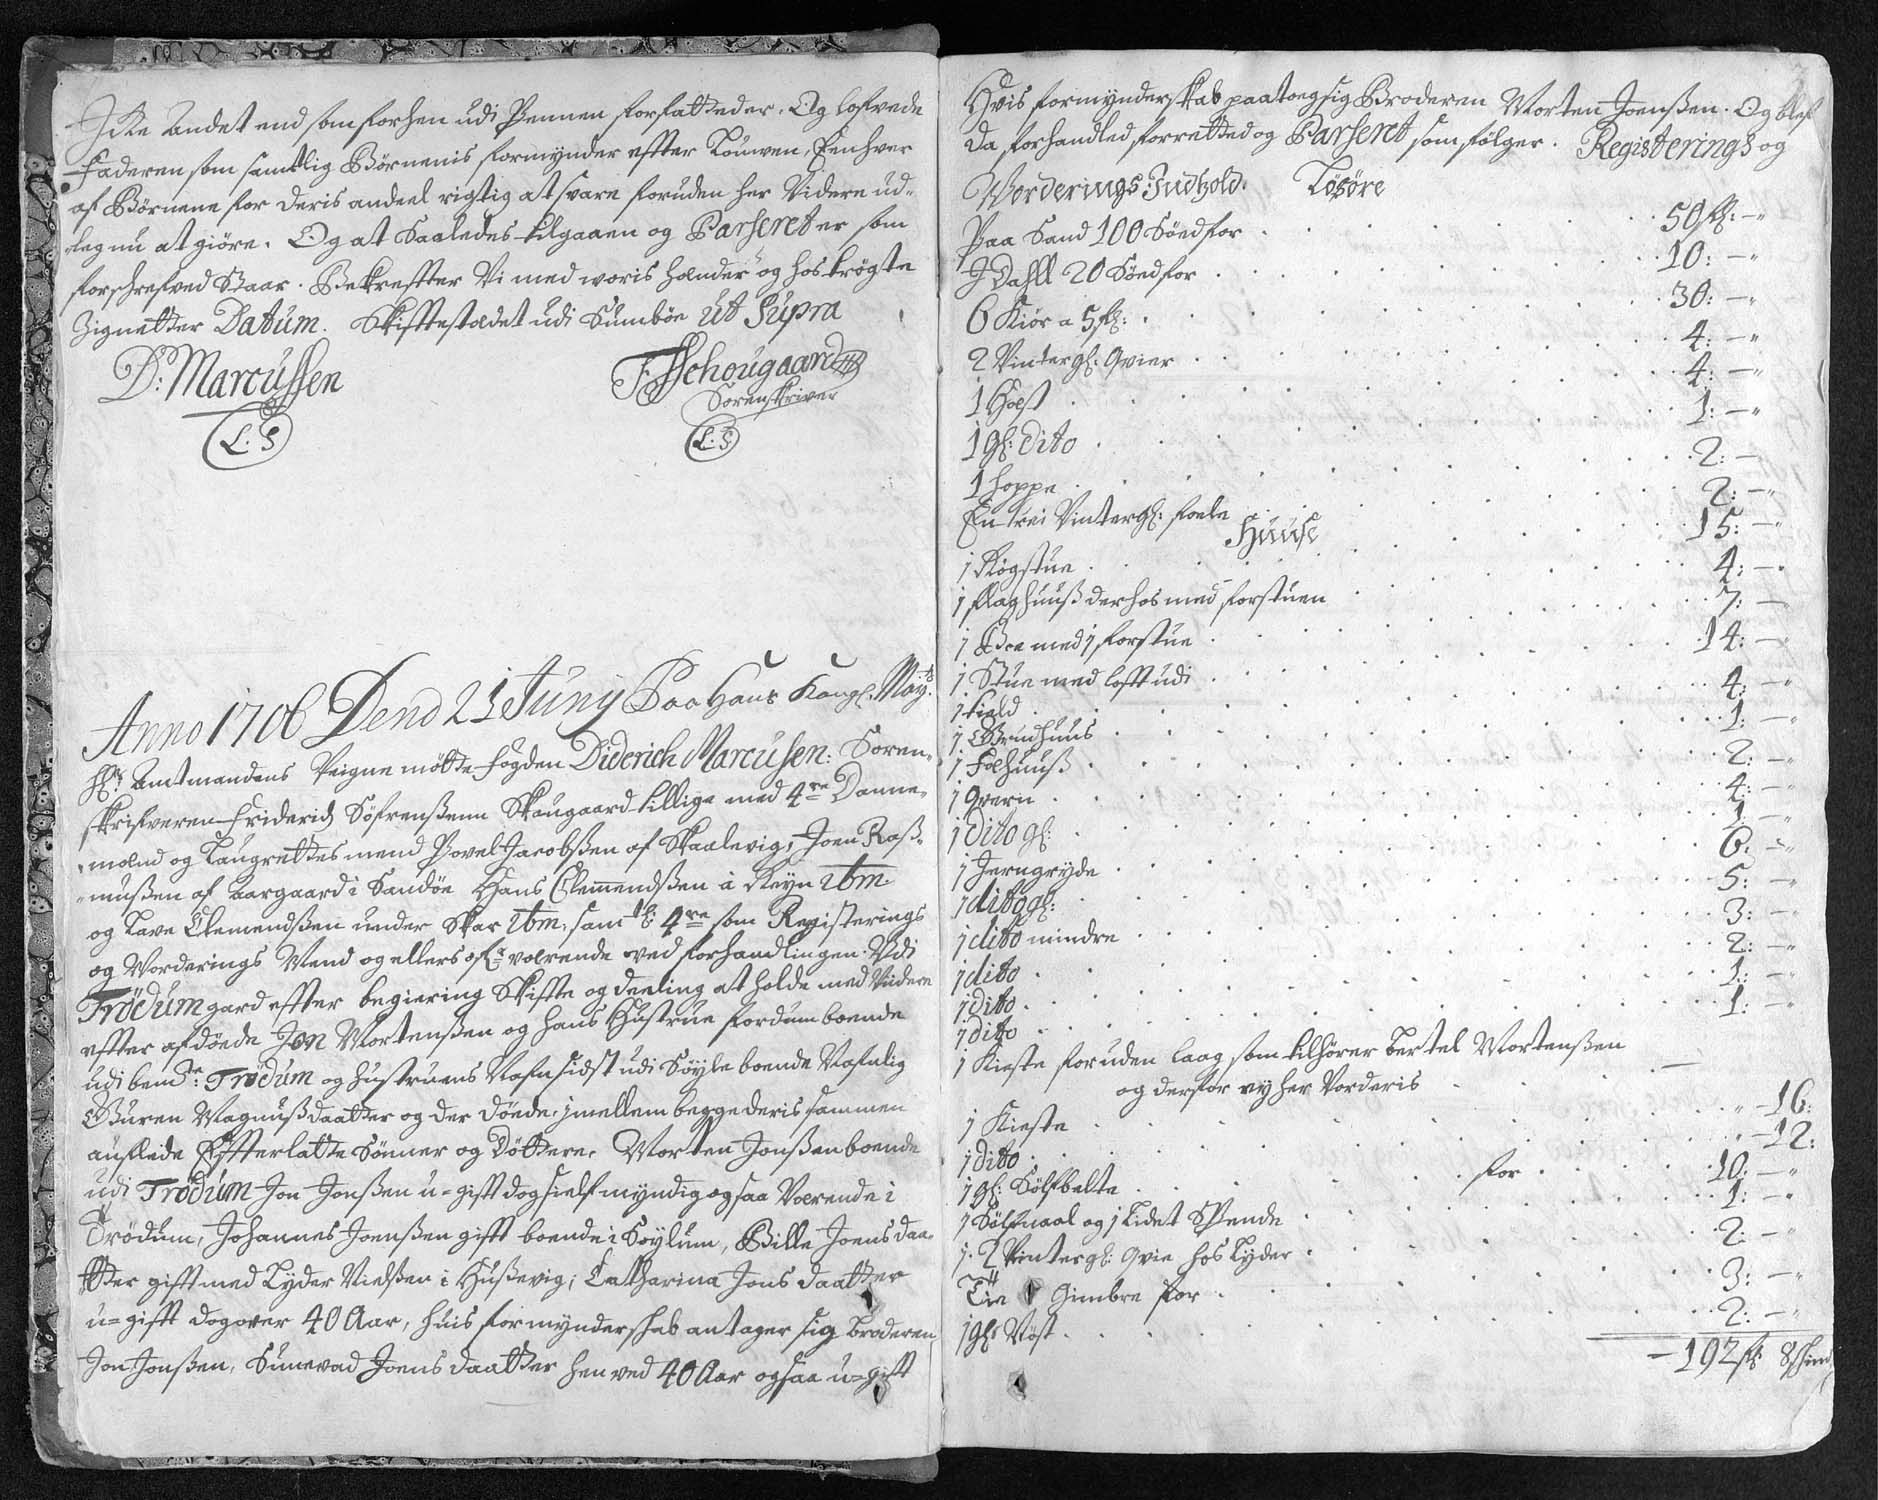 Icke Andet end som forhen udi Pennen forfatteder. Og lofvede
Faderen som samtlig Børnenis formynder effter Louven, Eenhver
af Børnene for deris andeel rigtig at svare foruden her Videre ud-
leg nu at giöre. Og at Saaledes tilgaaen og Parseret er som
forschrefved Staar. Bekreffter Vi med woris hænder og hoströgte
Zignetter Datum. Skifftestædet udi Sumböe Ut Supra
D: Marcussen
F. S Schougaard
Sorenskriver
L: S
L: S
Anno 1706 Dend 21 Juny Paa Hans Kongl. May:ts
Hr: Amtmandens Veigne mötte fogden Diderich Marcusen: Soren-
skrifveren Friderich Söfrenßenn Skougaard tillige med 4re Danne-
mænd og Laugrettes mend Povel Jacobßen af Skaalevig, Joen Raß-
mußen af Aargaard i Sandöe Hans Clemendßen à Reyn ibm.
og Lave Clemendßen under Skar ibm, samtl: 4re som Registerings
og Vorderings Mend og ellers ofr værende ved forhandlingen Udi
Trödum gard effter begiering Skiffte og deeling at holde med Videre
effter afdöede Jon Mortenßen og hans Hustrue fordum boende
udi bemte: Trödum og hustruens Nafn sidst udi Söyle boende Nafnlig
Guren Magnußdaatter og der döede, imellem begge deris sammen
auflede Effterlatte Sönner og Döttere. Morten Jonßen boende
udi Trödum Jon Jonßen u-gifft dog sielf myndig ogsaa Værende i
Trödum, Johannes Joenßen gifft boende i Söylum, Bille Joens daa-
tter gifft med Lyder Nielßen i Hußevig; Catharina Jons daatter
u-gifft dog over 40 Aar, huis formynderskab antager sig broderen
Jon Jonßen, Sunevad Joens daatter hen ved 40 Aar ogsaa u-gifft
Hvis formynderskab paatoeg sig Broderen Morten Joenßen. Og blef
da forhandled forretted og Parseret som fölger. Registerings og
Vorderings Indhold. Lösöre
Paa Sand 100 Söed for . . . 50 fl: —
I Dahll 20 Söed for . . . 10: —
6 Kiör a 5 fl: . . . 30: —
2 Vintergl: Qvier . . . 4: —
1 Hæst . . . 4: —
1 gl: dito . . . 1: —
1 hoppe . . . 2: —
En trei Vintergl: foele . . . 2: —
Huuse
1 Rögstue . . . 15: —
1 flaghuuß derhos med forstuen . . . 4: —
1 Boe med 1 forstue . . . 7: —
1 Stue med lofft udi . . . 14: —
1 Hield . . . 4: —
1 Grudhuus . . . 1: —
1 Foehuuß . . . 2: —
1 Qvern . . . 4: —
1 dito gl: . . . 1: —
1 Jerngryde . . . 6: —
1 dito gl: . . . 5: —
1 dito mindre . . . 3: —
1 dito . . . 2: —
1 dito . . . 1: —
1 dito . . . 1: —
1 Kieste foruden laag som tilhörer Bertel Mortenßen
og derfor ey her Vorderis . . . —
1 Kieste . . . " — 16:
1 dito . . . " — 12:
1 gl: Sölfbelte . . . for . . . 10: —
1 Sölfnaal og 1 Lidet Spende . . . 1: —
1. 2 Vintergl: Qvie hos Lyder . . . 2: —
Tie Gimbre for . . . 3: —
1 gl: Vöst . . . 2: —
— 192 fl: 8 schind